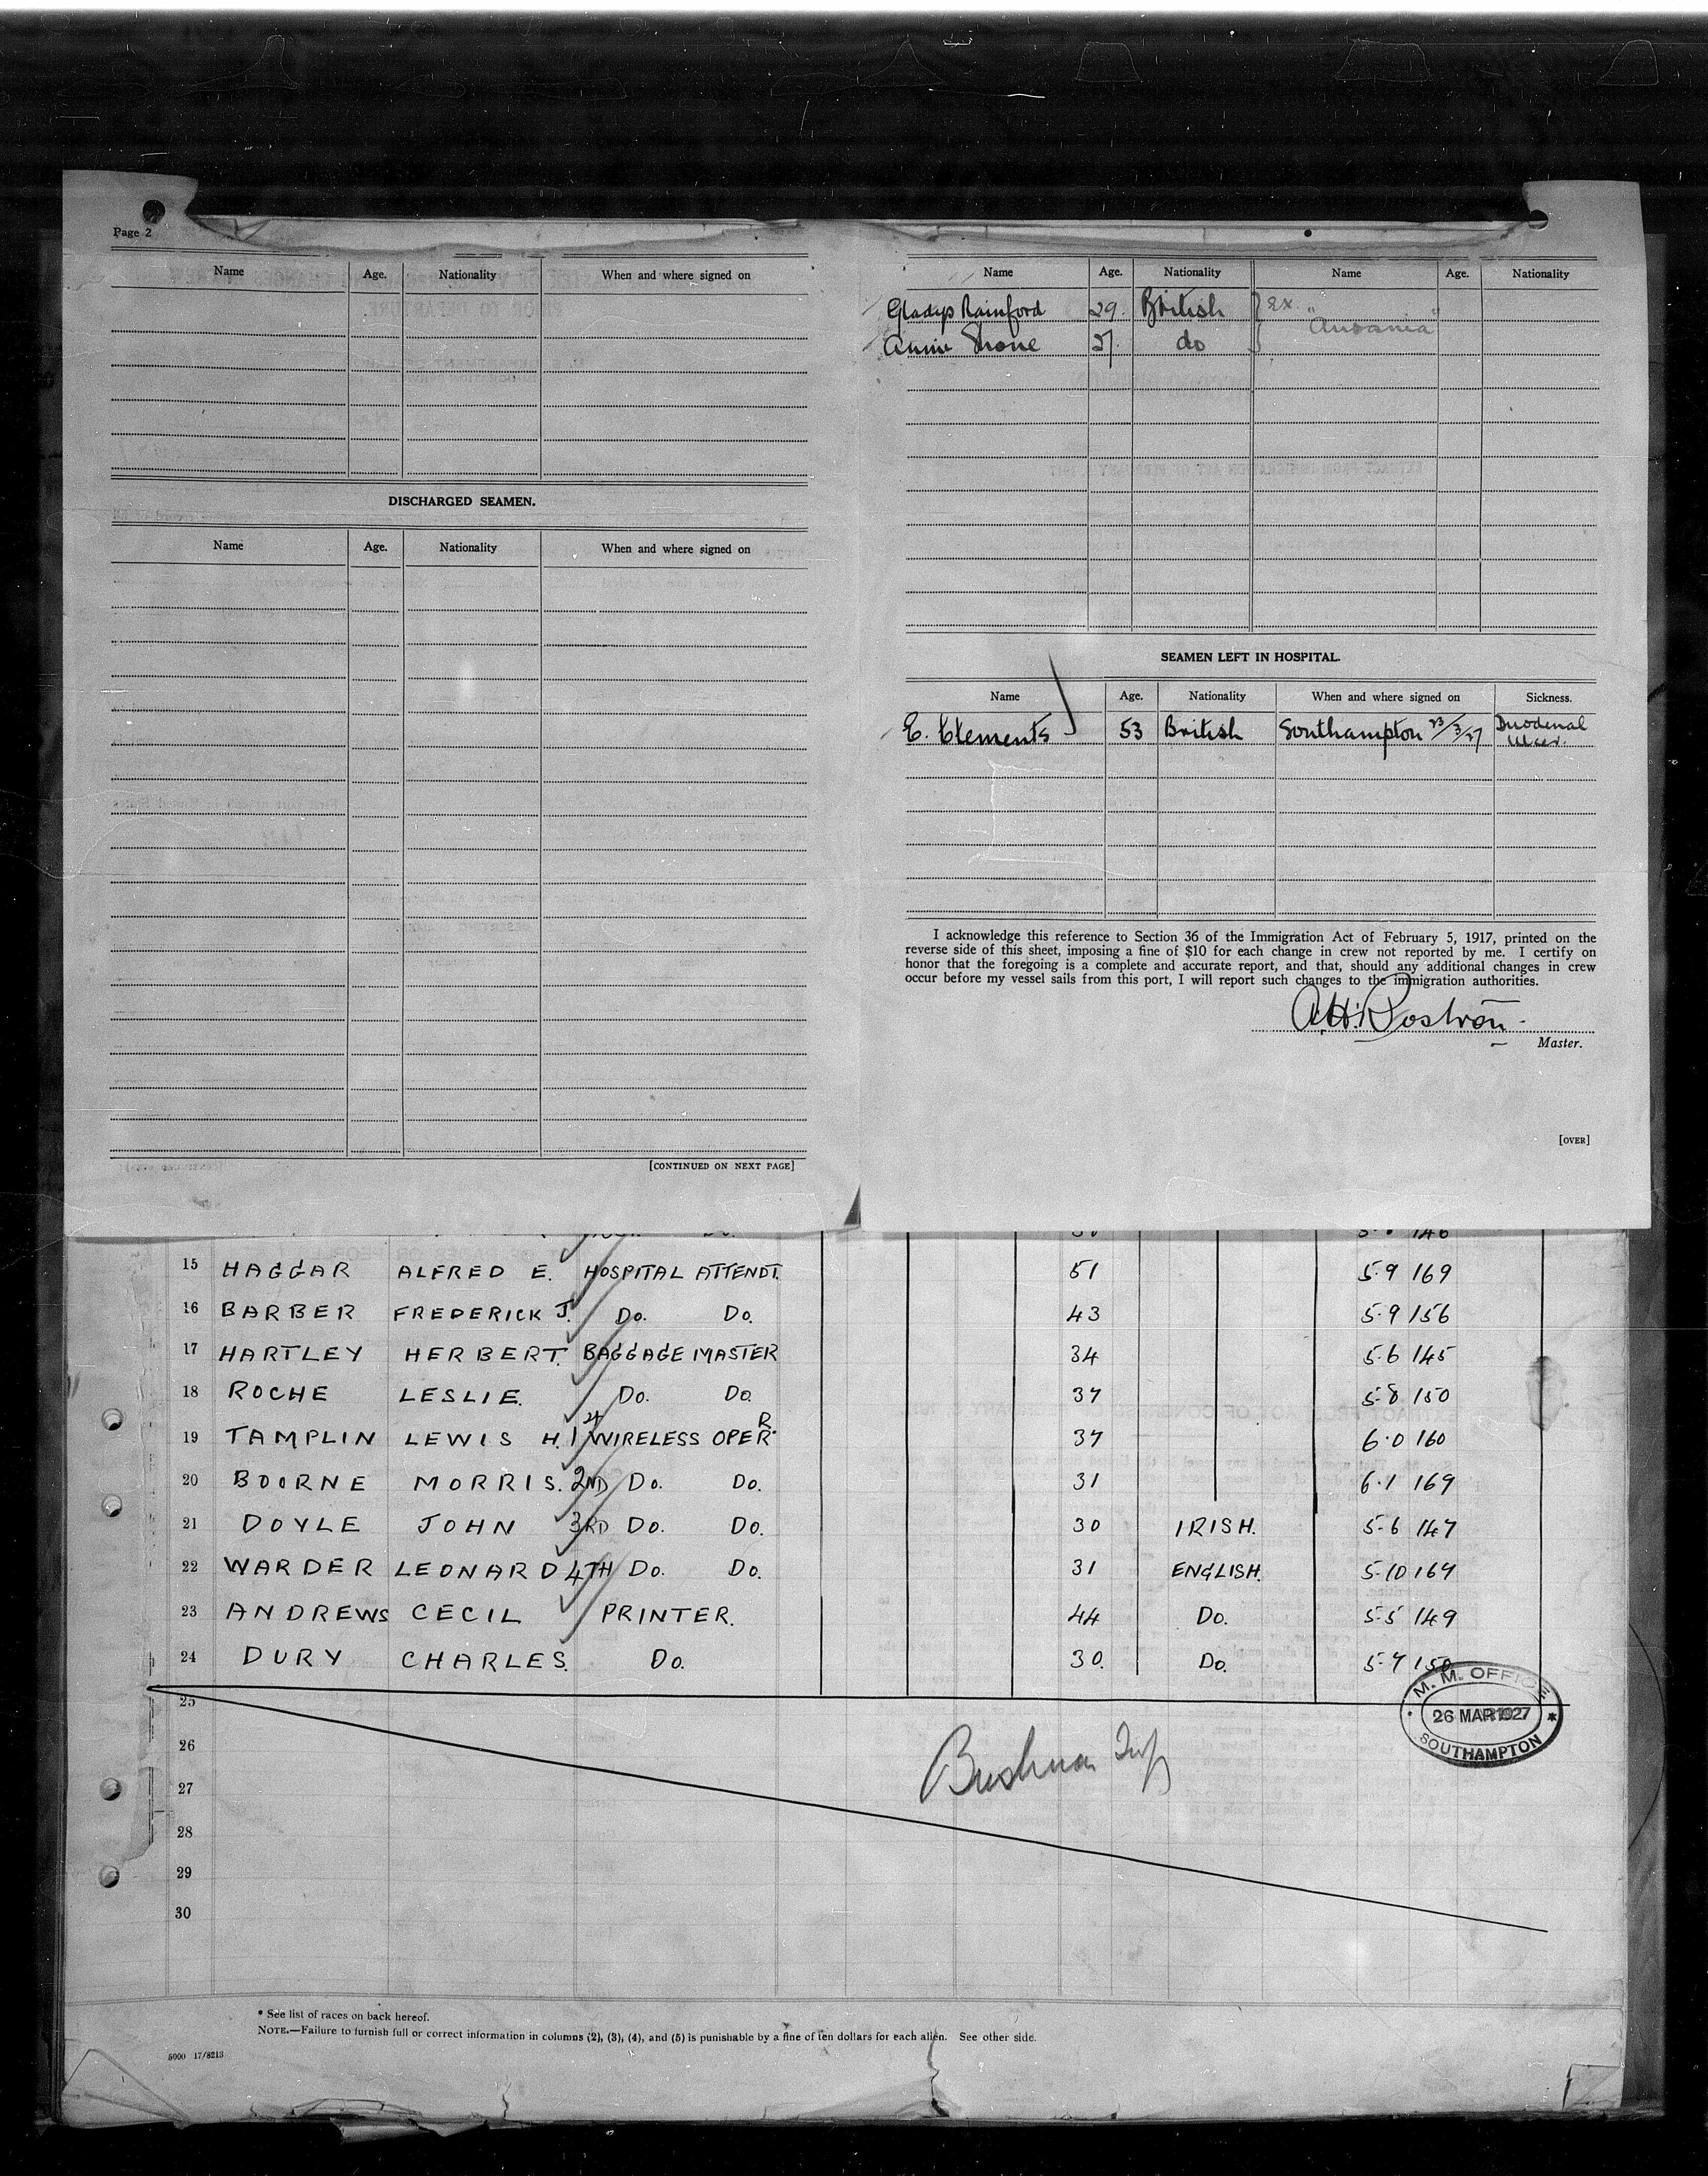 Page 2
Name Age. Nationality When and where signed on
DISCHARGED SEAMEN.
Name Age. Nationality When and where signed on
[CONTINUED ON NEXT PAGE]
Name Age. Nationality Name Age. Nationality
Gladys Rainford 29. British } ex "Ausania"
Annie 27. do
SEAMEN LEFT IN HOSPITAL.
Name Age. Nationality When and where signed on Sickness.
E. Clements 53 British Southampton 23/3/27 Duodenal
Ulcer.
I acknowledge this reference to Section 36 of the Immigration Act of February 5, 1917, printed on the
reverse side of this sheet, imposing a fine of $10 for each change in crew not reported by me. I certify on
honor that the foregoing is a complete and accurate report, and that, should any additional changes in crew
occur before my vessel sails from this port, I will report such changes to the immigration authorities.
A.H. Rostron
Master.
[OVER]
15 HAGGAR ALFRED E. HOSPITAL ATTENDT. 51 5·9 169
16 BARBER FREDERICK J. Do. Do. 43 5·9 156
17 HARTLEY HERBERT. BAGGAGE MASTER 34 5·6 145
18 ROCHE LESLIE. Do. Do. 37 5·8 150
19 TAMPLIN LEWIS H. 1st WIRELESS OPER. 37 6·0 160
20 BOORNE MORRIS. 2ND Do. Do. 31 6·1 169
21 DOYLE JOHN 3RD Do. Do. 30 IRISH. 5·6 147
22 WARDER LEONARD 4TH Do. Do. 31 ENGLISH. 5·10 164
23 ANDREWS CECIL PRINTER. 44 Do. 5·5 149
24 DURY CHARLES. Do. 30. Do. 5·7 150
25
26
27
28
29
30
M. M. OFFICE
26 MAR 1927
SOUTHAMPTON
* See list of races on back hereof.
NOTE.—Failure to furnish full or correct information in columns (2), (3), (4), and (5) is punishable by a fine of ten dollars for each alien. See other side.
5000 17/8213